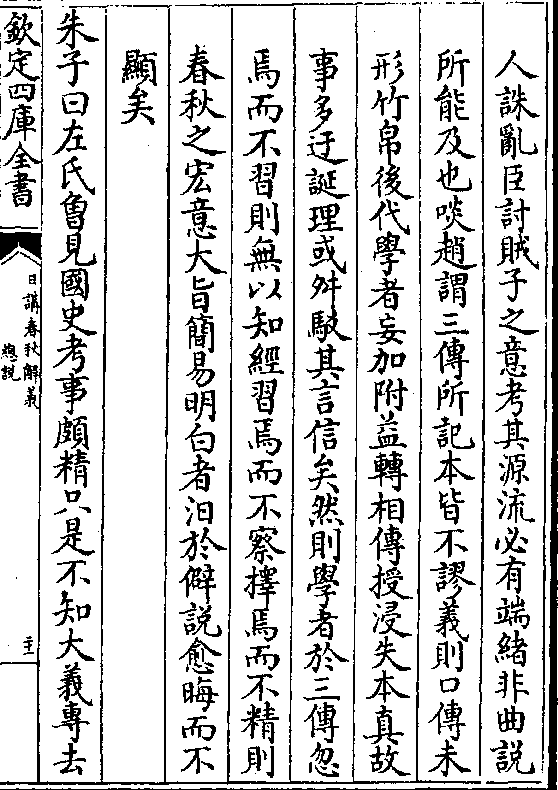 人誅亂臣討賊子之意考其源流必有端緒非曲説
所能及也啖趙謂三傳所記本皆不謬義則口傳未
形竹帛後代學者妄加附益轉相傳授浸失本真故
事多迂誕理或舛駁其言信矣然則學者於三傳忽
焉而不習則無以知經習焉而不察擇焉而不精則
春秋之宏意大旨簡易明白者汩於僻説愈晦而不
顯矣
朱子曰左氏曾見國史考事頗精只是不知大義專去
欽定四庫全書
日講春秋解義
總説